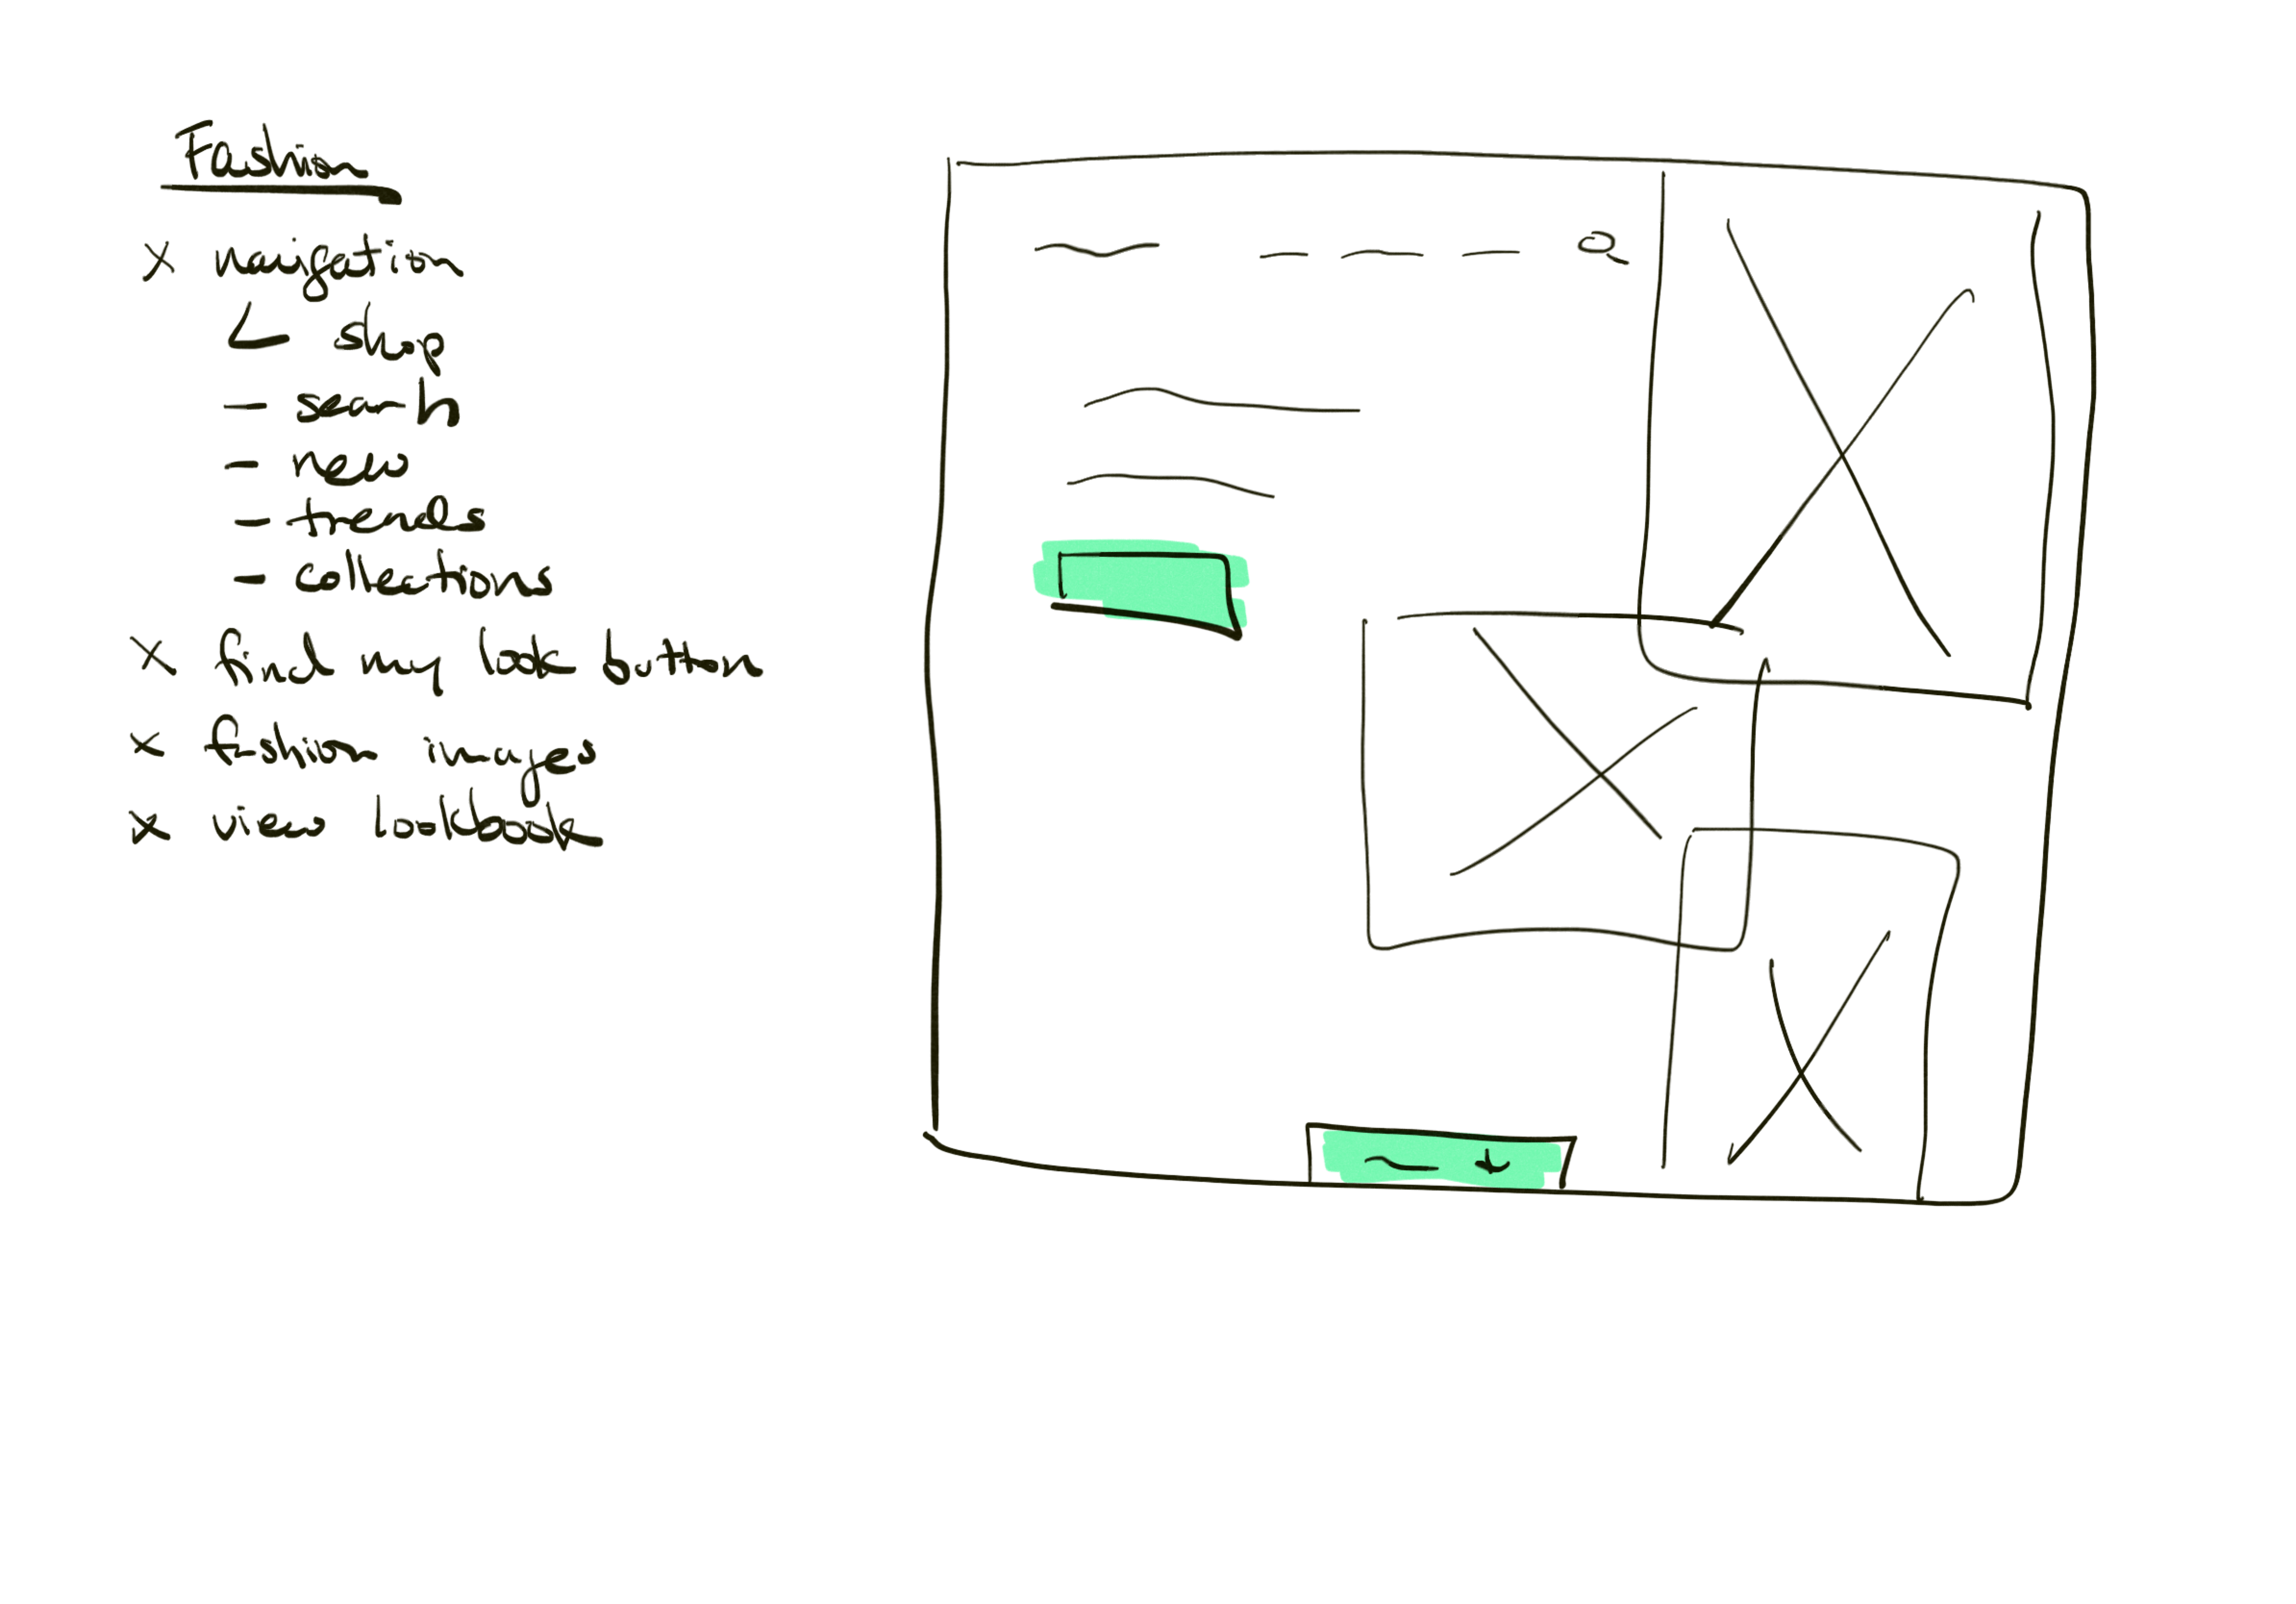 Fashion
x navigation
shop
- search
- new
- trends
- collections
x find my look button
x fashion images
x view lookbook